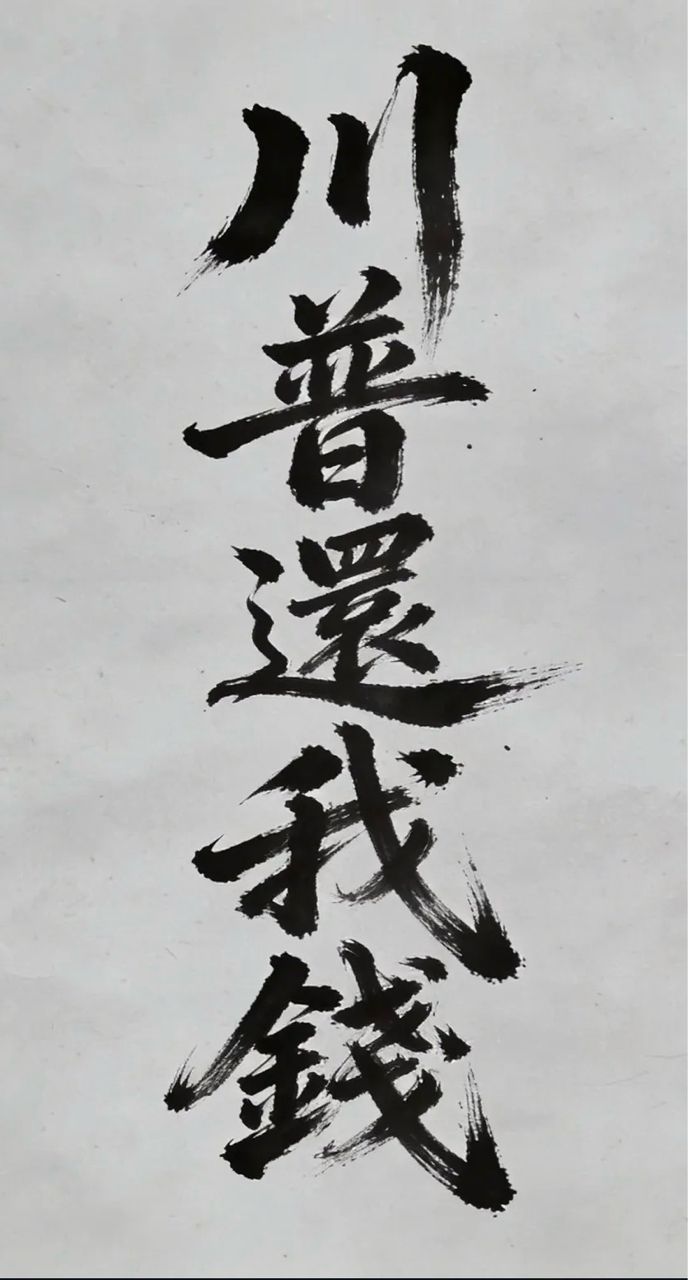 川普還我錢